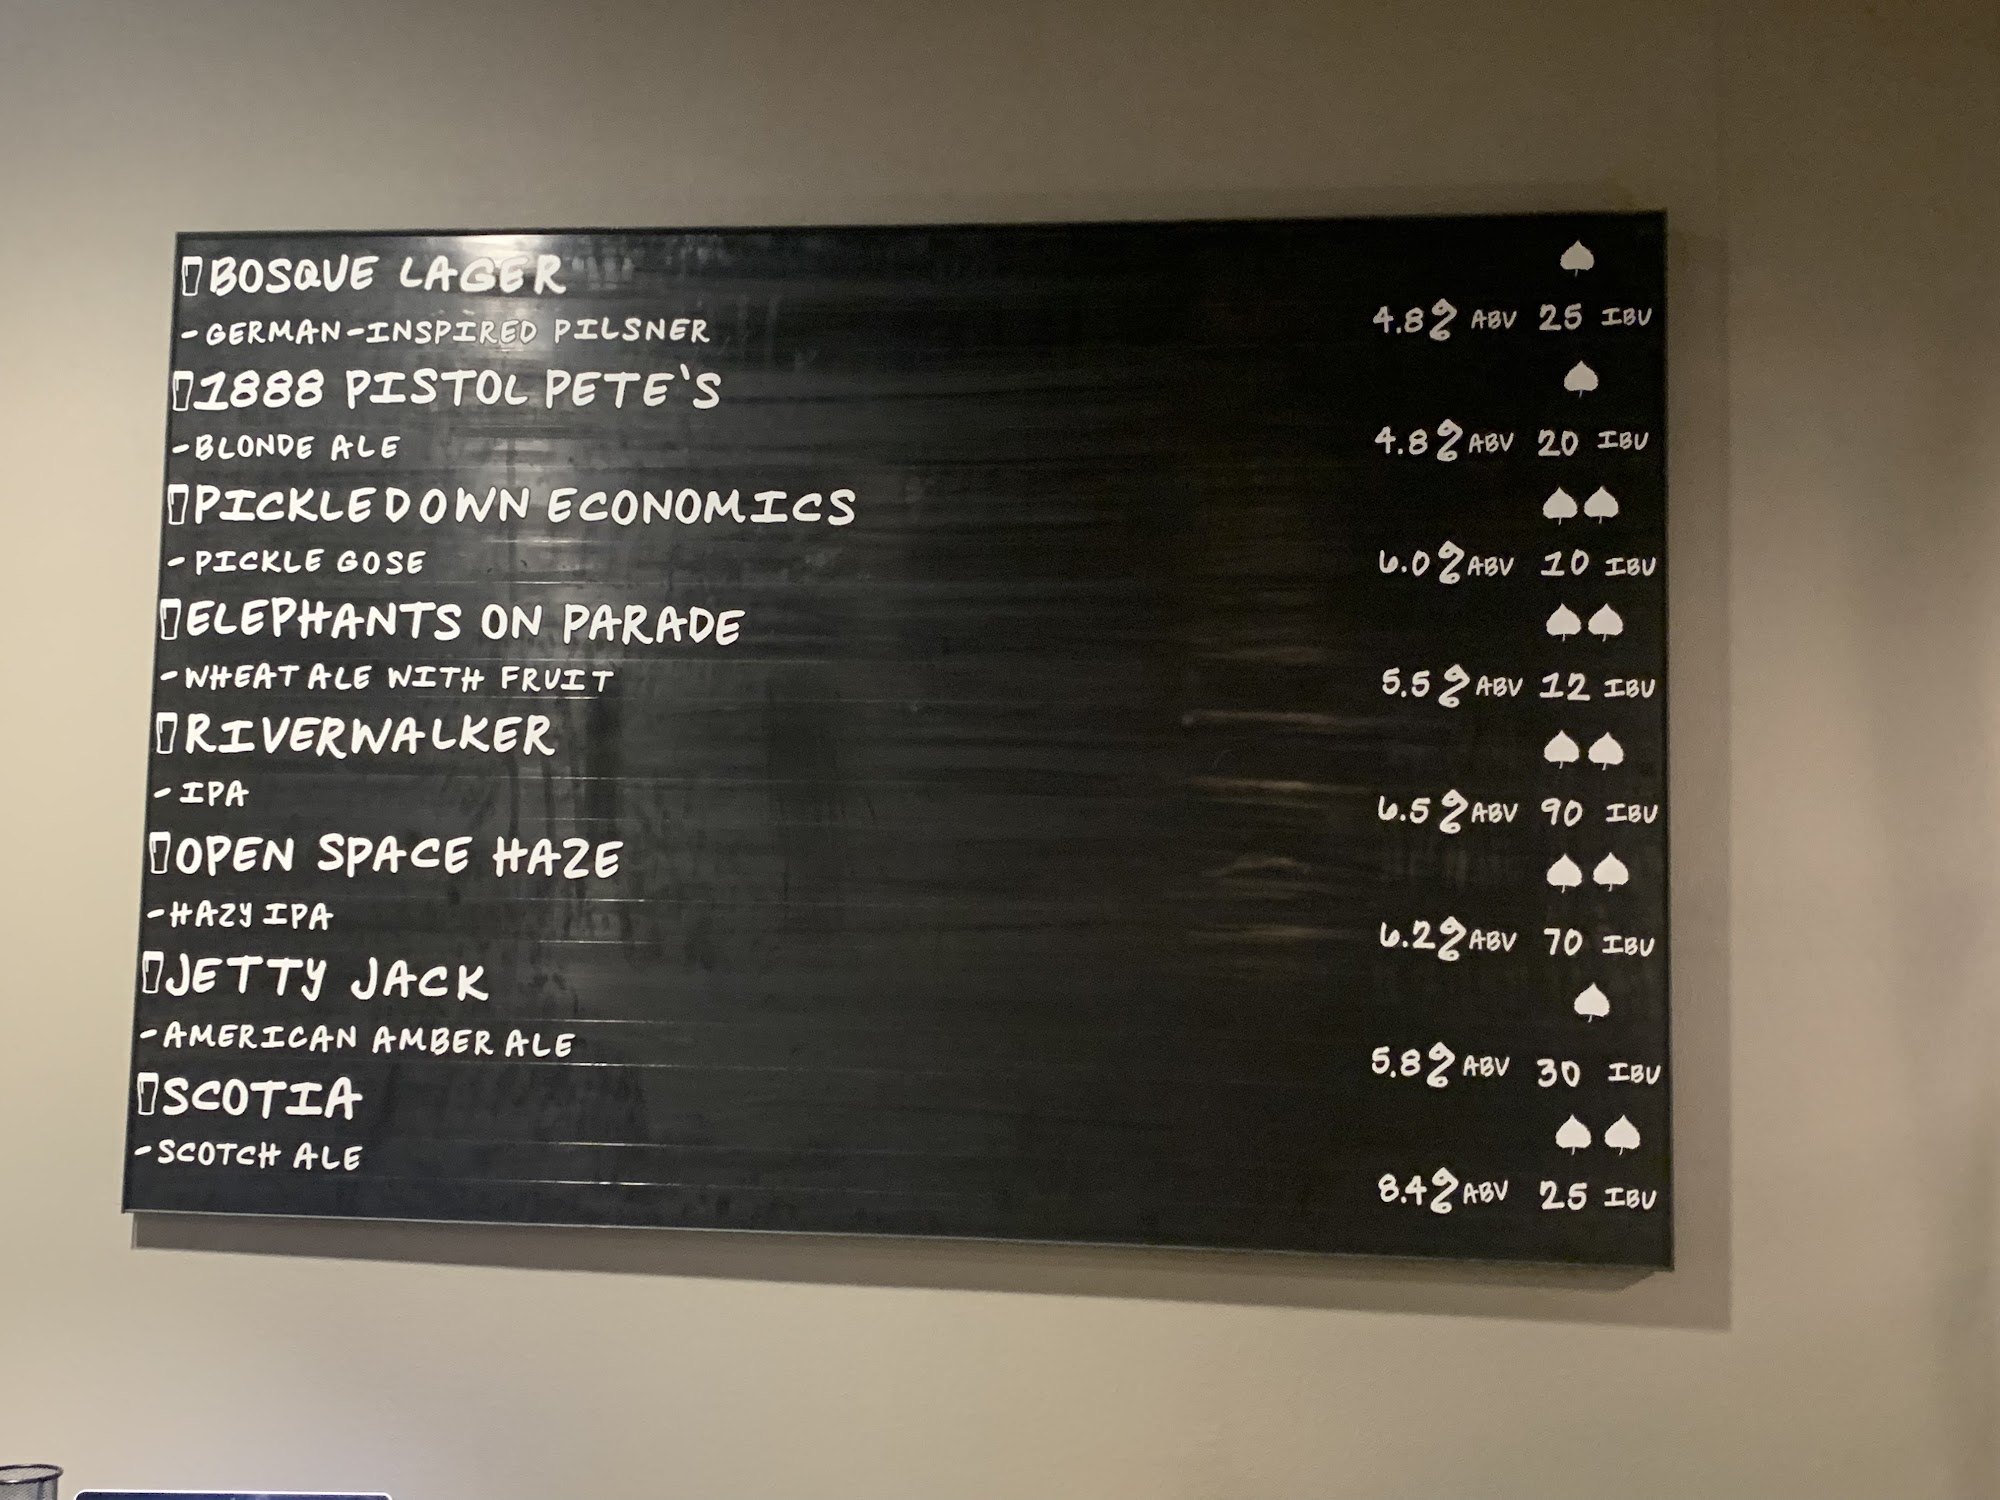 BOSQUE LAGER
-GERMAN-INSPIRED PILSNER 4.8% ABV 25 IBU
1888 PISTOL PETE'S
-BLONDE ALE 4.8% ABV 20 IBU
PICKLEDOWN ECONOMICS
-PICKLE GOSE 6.0% ABV 10 IBU
ELEPHANTS ON PARADE
-WHEAT ALE WITH FRUIT 5.5% ABV 12 IBU
RIVERWALKER
-IPA 6.5% ABV 90 IBU
OPEN SPACE HAZE
-HAZY IPA 6.2% ABV 70 IBU
JETTY JACK
-AMERICAN AMBER ALE 5.8% ABV 30 IBU
SCOTIA
-SCOTCH ALE 8.4% ABV 25 IBU